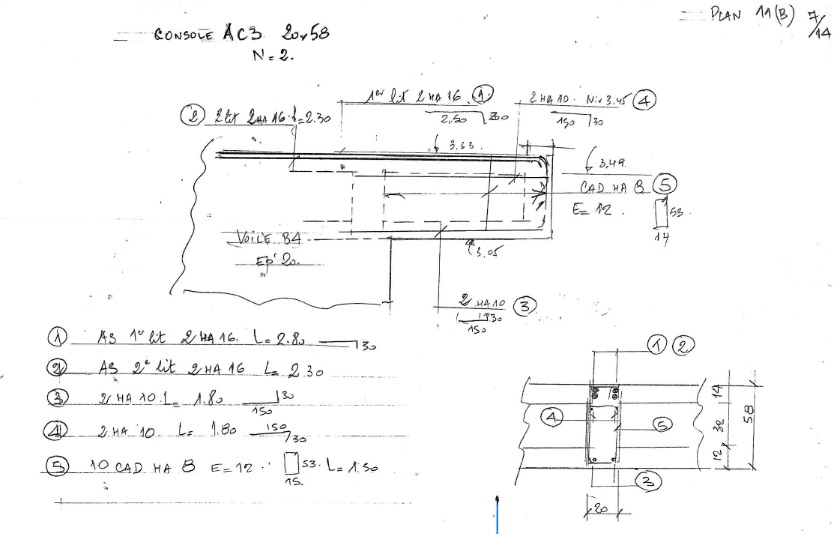 PLAN 11(B) 7/14
CONSOLE AC3 20x58
N=2.
1er lit 2HA16. ①
2.50 30
2HA10. Niv 3.45 ④
150 30
② 2 lit 2HA16. L=2.30
3.63.
3.49.
CAD HA 8 ⑤
E=12.
53.
14
VOILE B4
Ep 20.
3.05
2 HA10 ③
30
150
① A3 1er lit 2HA16. L=2.80 30
② A3 2e lit 2HA16 L=2.30
③ 2HA10. L=1.80 30
150
④ 2HA10 L=1.80 150
30
⑤ 10 CAD HA 8 E=12. 53. L=1.50
15.
① ②
④ ⑤
③
14
32
12
58
20